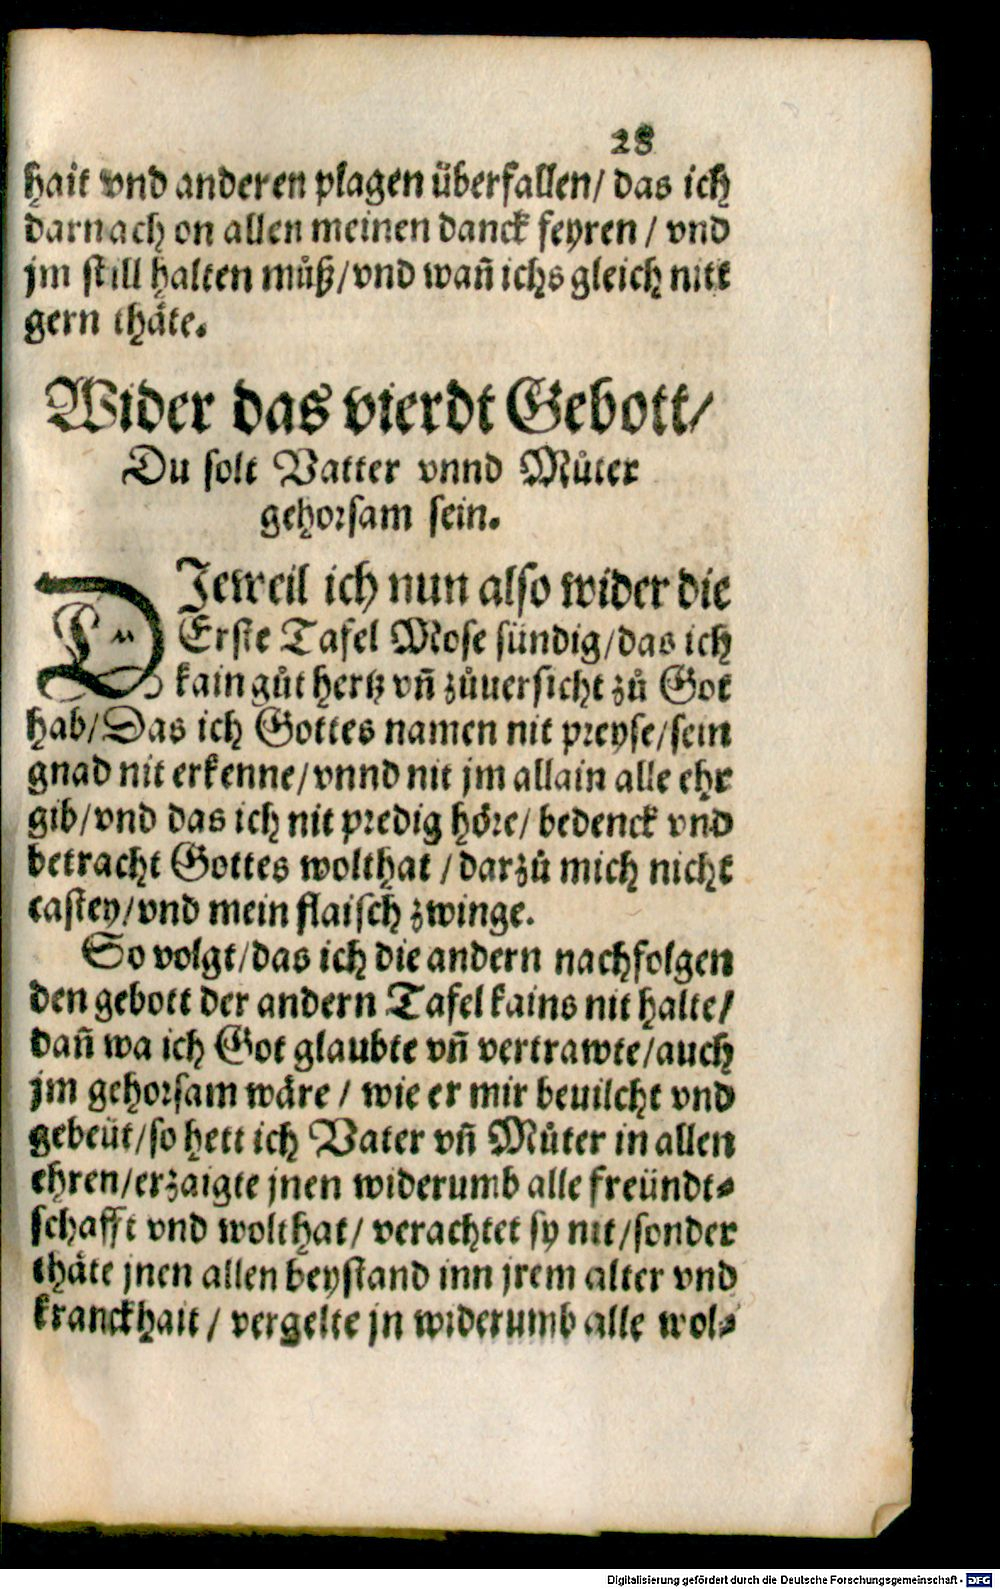 28
hait vnd anderen plagen überfallen/ das ich
darnach on allen meinen danck feyren / vnd
jm still halten müß/vnd wañ ichs gleich nitt
gern thäte.
Wider das vierdt Gebott/
Du solt Vatter vnnd Můter
gehorsam sein.
DJeweil ich nun also wider die
Erste Tafel Mose sündig/das ich
kain gůt hertz vñ zůuersicht zů Got
hab/Das ich Gottes namen nit preyse/sein
gnad nit erkenne/vnnd nit jm allain alle ehr
gib/vnd das ich nit predig höre/ bedenck vnd
betracht Gottes wolthat /darzů mich nicht
castey/vnd mein flaisch zwinge.
So volgt/das ich die andern nachfolgen
den gebott der andern Tafel kains nit halte/
dañ wa ich Got glaubte vñ vertrawte/auch
jm gehorsam wäre / wie er mir beuilcht vnd
gebeüt/so hett ich Vater vñ Můter in allen
ehren/erzaigte jnen widerumb alle freündt⸗
schafft vnd wolthat/ verachtet sy nit/sonder
thäte jnen allen beystand inn jrem alter vnd
kranckhait / vergelte jn widerumb alle wol⸗
Digitalisierung gefördert durch die Deutsche Forschungsgemeinschaft - DFG